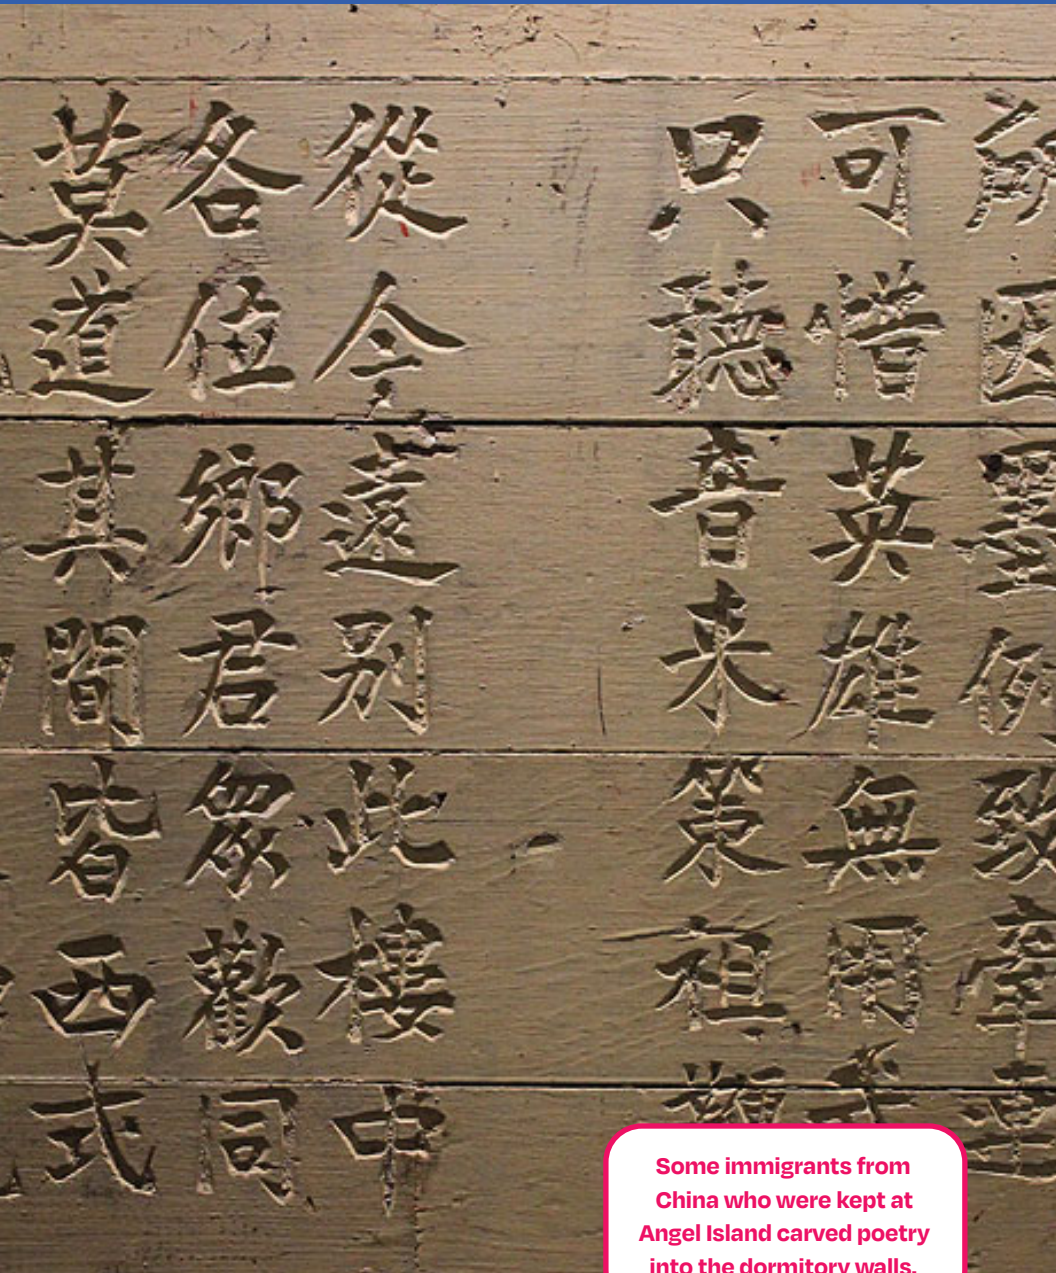 解因墨例致牽連
可惜英雄無用
只聽音来策祖
從今遠别此樓中
各位鄉君眾歡同
莫道其間皆西式
Some immigrants from
China who were kept at
Angel Island carved poetry
into the dormitory walls.